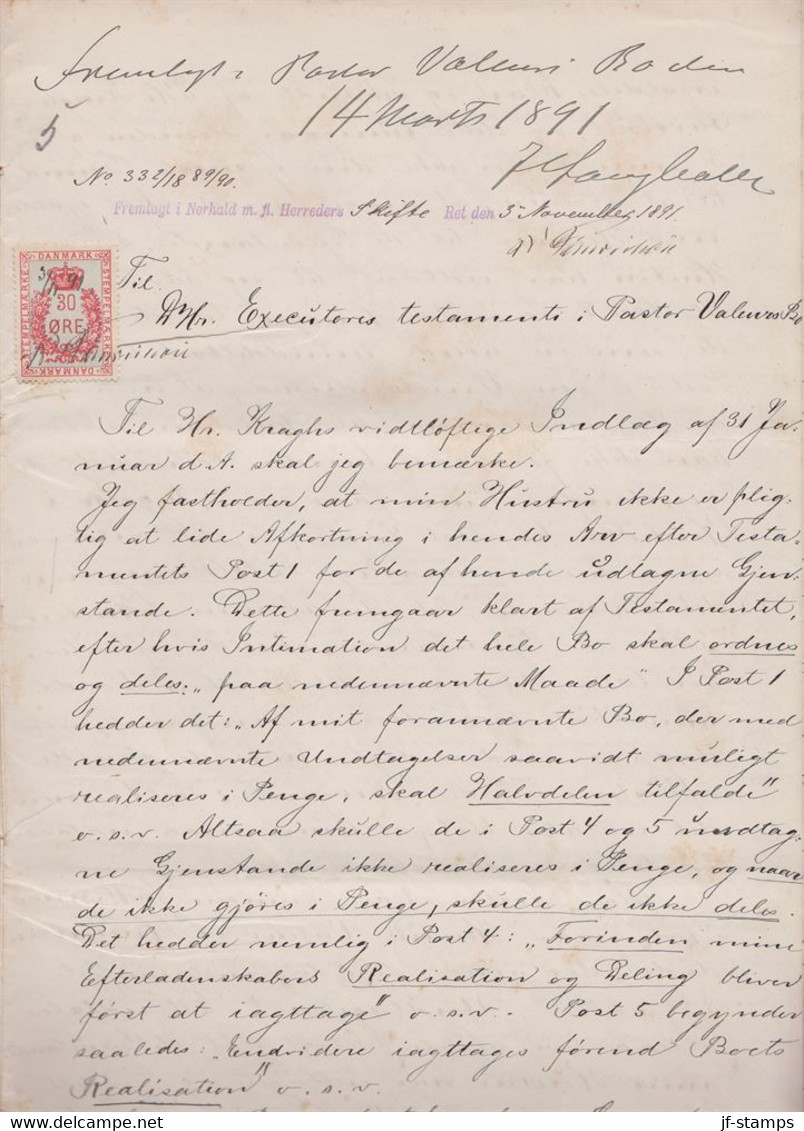 Fremlagt i Pastor Valeurs Boden
14 Marts 1891
5
No. 332/18 89/90.
Fremlagt i Nørhald m. fl. Herreders Skifte Ret den 5 November 1891.
DANMARK
STEMPELMÆRKE
30
ØRE
STEMPELMÆRKE
DANMARK
Til
DHr. Executores testamenti i Pastor Valeurs Bo
Til Hr. Kraghs vidtløftige Indlæg af 31 Ja-
nuar d.A. skal jeg bemærke.
Jeg fastholder, at min Hustru ikke er plig-
tig at lide Afkortning i hendes Arv efter Testa-
mentets Post 1 for de af hende udtagne Gjen-
stande. Dette fremgaar klart af Testamentet,
efter hvis Intimation det hele Bo skal ordnes
og deles: „paa nedennævnte Maade" I Post 1
hedder det: „Af mit forannævnte Bo, der med
nedennævnte Undtagelser saavidt muligt
realiseres i Penge, skal Halvdelen tilfalde"
o.s.v. Altsaa skulle de i Post 4 og 5 undtag-
ne Gjenstande ikke realiseres i Penge, og naar
de ikke gjöres i Penge, skulle de ikke deles.
Det hedder nemlig i Post 4: „Forinden mine
Efterladenskabers Realisation og Deling bliver
först at iagttage" o.s.v. - Post 5 begynder
saaledes: „Endvidere iagttages förend Boets
Realisation" o.s.v.
jf-stamps